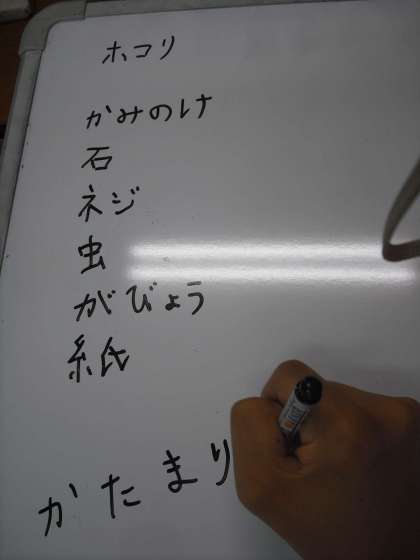 ホコリ
かみのけ
石
ネジ
虫
がびょう
紙
かたまり